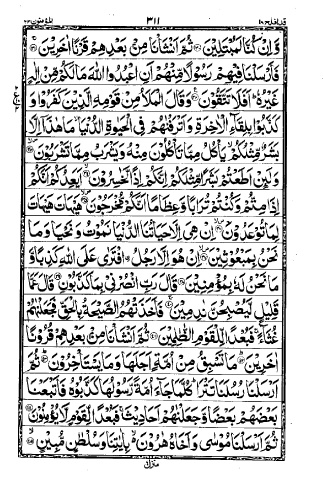 قد افلح ١٨ ٣١١ المؤمنون ٢٣
وَّاِنْ كُنَّا لَمُبْتَلِيْنَ ۝٣٠ ثُمَّ اَنْشَاْنَا مِنْۢ بَعْدِهِمْ قَرْنًا اٰخَرِيْنَ ۝٣١
فَاَرْسَلْنَا فِيْهِمْ رَسُوْلًا مِّنْهُمْ اَنِ اعْبُدُوا اللّٰهَ مَا لَكُمْ مِّنْ اِلٰهٍ
غَيْرُهٗ ؕ اَفَلَا تَتَّقُوْنَ ۝٣٢ وَقَالَ الْمَلَاُ مِنْ قَوْمِهِ الَّذِيْنَ كَفَرُوْا وَ
كَذَّبُوْا بِلِقَآءِ الْاٰخِرَةِ وَاَتْرَفْنٰهُمْ فِي الْحَيٰوةِ الدُّنْيَا ۙ مَا هٰذَاۤ اِلَّا
بَشَرٌ مِّثْلُكُمْ ۙ يَاْكُلُ مِمَّا تَاْكُلُوْنَ مِنْهُ وَيَشْرَبُ مِمَّا تَشْرَبُوْنَ ۝٣٣
وَلَئِنْ اَطَعْتُمْ بَشَرًا مِّثْلَكُمْ اِنَّكُمْ اِذًا لَّخٰسِرُوْنَ ۝٣٤ اَيَعِدُكُمْ اَنَّكُمْ
اِذَا مِتُّمْ وَكُنْتُمْ تُرَابًا وَّعِظَامًا اَنَّكُمْ مُّخْرَجُوْنَ ۝٣٥ هَيْهَاتَ هَيْهَاتَ
لِمَا تُوْعَدُوْنَ ۝٣٦ اِنْ هِيَ اِلَّا حَيَاتُنَا الدُّنْيَا نَمُوْتُ وَنَحْيَا وَمَا
نَحْنُ بِمَبْعُوْثِيْنَ ۝٣٧ اِنْ هُوَ اِلَّا رَجُلُ اۨفْتَرٰى عَلَى اللّٰهِ كَذِبًا وَّ
مَا نَحْنُ لَهٗ بِمُؤْمِنِيْنَ ۝٣٨ قَالَ رَبِّ انْصُرْنِيْ بِمَا كَذَّبُوْنِ ۝٣٩ قَالَ عَمَّا
قَلِيْلٍ لَّيُصْبِحُنَّ نٰدِمِيْنَ ۝٤٠ فَاَخَذَتْهُمُ الصَّيْحَةُ بِالْحَقِّ فَجَعَلْنٰهُمْ
غُثَآءً ۚ فَبُعْدًا لِّلْقَوْمِ الظّٰلِمِيْنَ ۝٤١ ثُمَّ اَنْشَاْنَا مِنْۢ بَعْدِهِمْ قُرُوْنًا
اٰخَرِيْنَ ۝٤٢ مَا تَسْبِقُ مِنْ اُمَّةٍ اَجَلَهَا وَمَا يَسْتَاْخِرُوْنَ ۝٤٣ ثُمَّ
اَرْسَلْنَا رُسُلَنَا تَتْرَا ؕ كُلَّمَا جَآءَ اُمَّةً رَّسُوْلُهَا كَذَّبُوْهُ فَاَتْبَعْنَا
بَعْضَهُمْ بَعْضًا وَّجَعَلْنٰهُمْ اَحَادِيْثَ ۚ فَبُعْدًا لِّقَوْمٍ لَّا يُؤْمِنُوْنَ ۝٤٤
ثُمَّ اَرْسَلْنَا مُوْسٰى وَاَخَاهُ هٰرُوْنَ ۙ بِاٰيٰتِنَا وَسُلْطٰنٍ مُّبِيْنٍ ۝٤٥